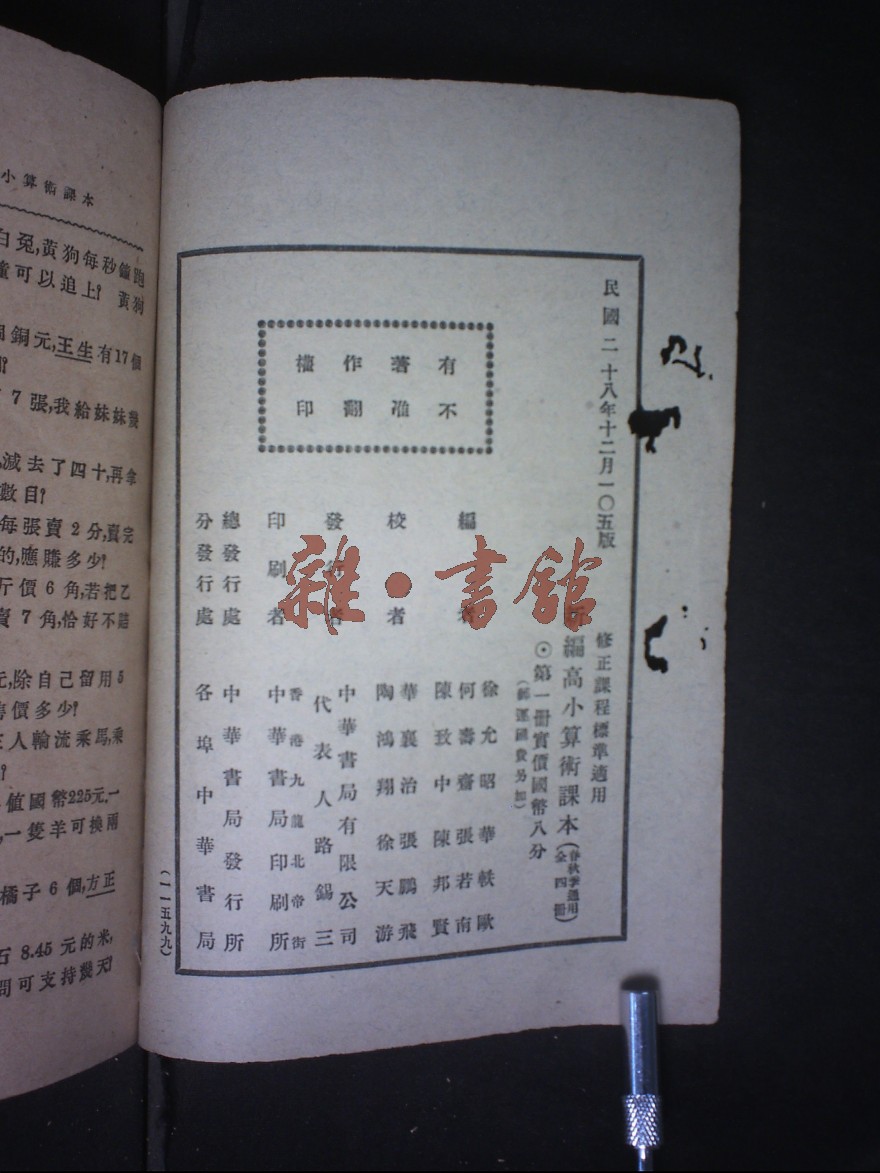 民國二十八年十二月一〇五版
修正課程標準適用
編高小算術課本(春秋季適用 全四冊)
⊙第一冊實價國幣八分
(郵運匯費另加)
有著作權
不准翻印
編者
徐允昭 華軼歐
何壽齋 張若南
陳致中 陳邦賢
校者
華襄治 張鵬飛
陶鴻翔 徐天游
發行者
中華書局有限公司
代表人路錫三
印刷者
香港九龍北帝街
中華書局印刷所
總發行處
中華書局發行所
分發行處
各埠中華書局
(一一五九九)
雜·書館
小算術課本
白兔,黃狗每秒鐘跑
可以追上? 黃狗
銅元,王生有17個
7張,我給妹妹幾
減去了四十,再拿
數目?
每張賣2分,賣完
的,應賺多少?
斤價6角,若把乙
賣7角,恰好不賠
元,除自己留用5
價多少?
人輪流乘馬,乘
值國幣225元.一
,一隻羊可換兩
橘子6個,方正
石8.45元的米,
問可支持幾天?